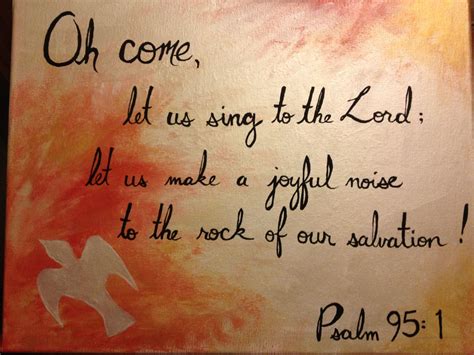 Oh come,
let us sing to the Lord;
let us make a joyful noise
to the rock of our salvation!
Psalm 95:1